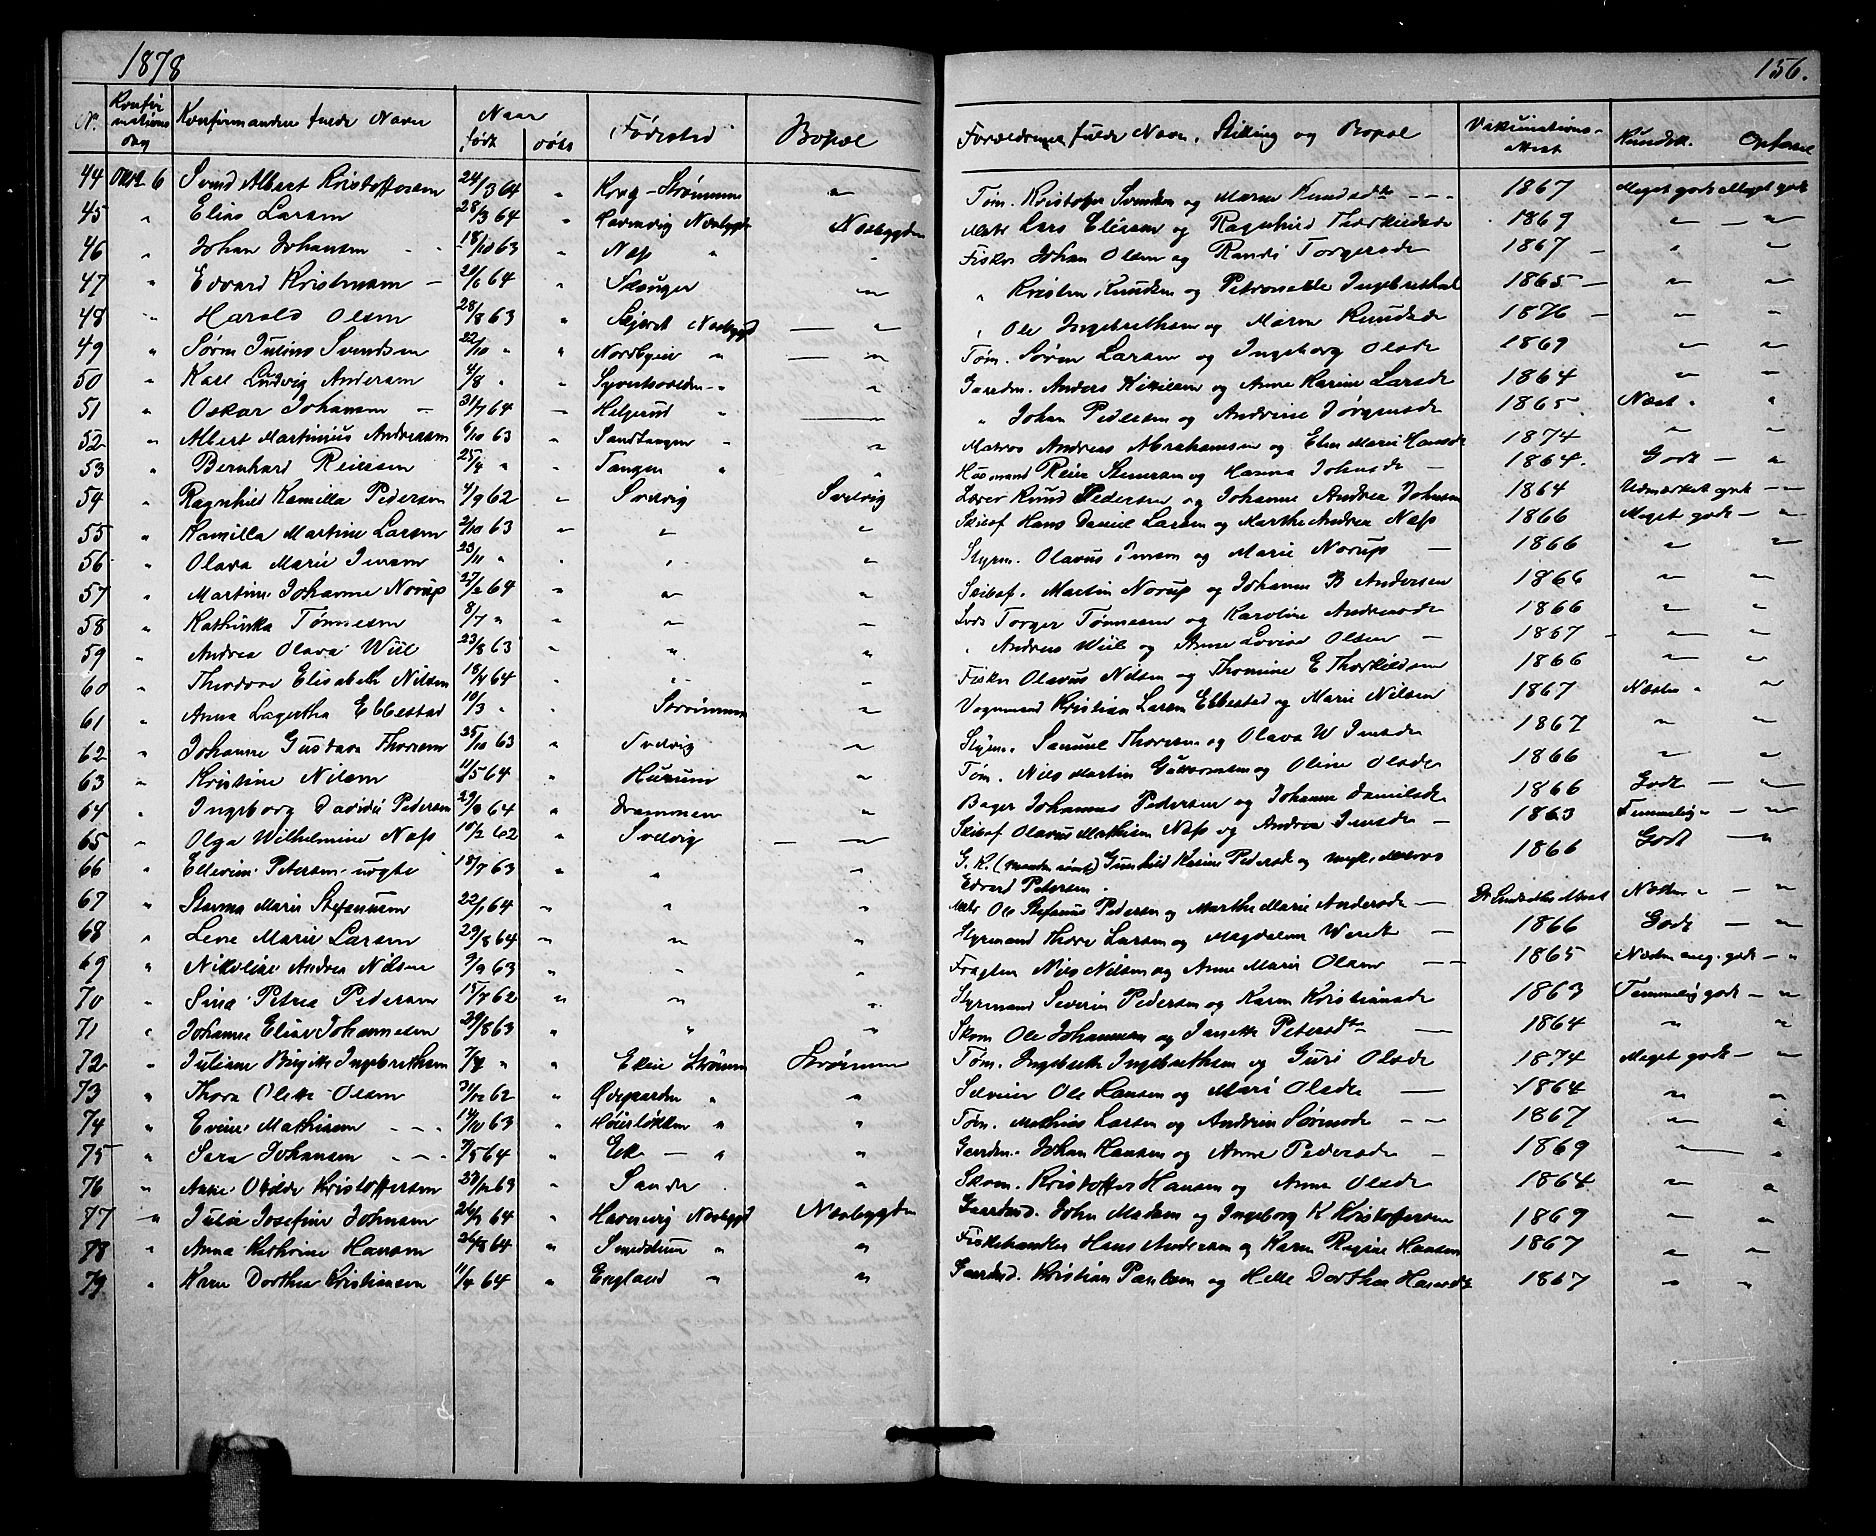 1878
156.
N. Konfirmations dag Konfirmandens fulde Navn Naar født døbt Fødested Bopæl Forældrenes fulde Navn, Stilling og Bopæl Vakcinations-attest Kundsk. Opførsel
44 Oktr 6 Svend Albert Kristoffersen 24/3 64 " Krog - Strømmen " Tøm. Kristofer Svendsen og Maren Knudsdtr - - - 1867 Meget godt Meget godt
45 " Elias Larsen 28/3 64 " Havnevig Nesbygd Nesbygden Matr Lars Eliesen og Ragnhild Thorkildsdr 1869 " "
46 " Johan Johansen - - 18/10 63 " Næss " " Fisker Johan Olsen og Randi Torgersdr 1867 - " "
47 " Edvard Kristensen - 20/6 64 " " " Kristen Knudsen og Petronelle Ingebrethsd 1865 - " "
48 " Harald Olsen 28/8 63 " Nesbygd " " Ole Ingebrethsen og Maren Knudsdr 1876 - " "
49 " Søren Julius Svendsen 22/10 " " Nordbyeie " " Tøm. Søren Larsen og Ingeborg Olsdr 1869 " "
50 " Karl Ludvig Andersen 4/8 " " " " Gaardm. Anders Kittilsen og Anne Karine Larsdr 1864 " "
51 " Oskar Johansen - 31/7 64 " Helgerud " " " Johan Pedersen og Andrine Jørgensdr 1865 Næst " "
52 " Albert Martinius Andreasen 6/10 63 " Sandtangen " " Matros Andreas Abrahamsen og Elen Marie Hansdr 1874 " "
53 " Bernhard Reiersen 25/4 " " Tangen " " Husmand Reier Stenersen og Hanna Johnsdr - 1864. Godt - "
54 " Ragnhild Kamilla Pedersen 4/9 62 " Svelvig Svelvig Lærer Knud Pedersen og Johanne Andrea Johnsen 1864 Udmærket godt - "
55 " Kamilla Martine Larsen 2/10 63 " " " Skibsf Hans Daniel Larsen og Marthe Andrea Næss 1866 Meget godt - "
56 " Olava Marie Jensen 23/11 " " " " Styrm. Olavus Jensen og Marie Norup - 1866 " "
57 " Martine Johanne Norup 27/2 64 " " " Skibsf. Martin Norup og Johanne B Andersen 1866 " "
58 " Kathinka Tønnesen 8/7 " " " " Lods Torger Tønnesen og Karoline Andreasdr 1866 " "
59 " Andrea Olava Wiil 23/8 63 " " " " Andreas Wiil og Anne Lovise Olsen - 1867 - " "
60 " Theodora Elisabeth Nilsen 18/4 64 " " " Fisker Olavus Nilsen og Thomine E Thorkildsen 1866 " "
61 " Anna Lagertha Ebbestad 10/3 " " Strømmen " Vognmand Kristian Larsen Ebbestad og Marie Nilsen 1867 Næsten " "
62 " Johanne Gustava Thoresen 25/10 63 " Svelvig " Styrm. Samuel Thoresen og Olava W Jensdr 1867 " "
63 " Kristine Nilsen 11/5 64 " Hurum " Tøm. Nils Martin Guttormsen og Oline Olsdr 1866 " "
64 " Ingeborg Davidie Pedersen 29/8 64 " Drammen " Bager Johannes Pedersen og Johanne Danielsdr 1866 Godt - "
65 " Olga Wilhelmine Næss 10/2 62 " Svelvig " Skibsf Olavus Mathisen Næss og Andrea Jensdr - 1863 Temmelig - "
66 " Ellevine Petersen uægte 18/7 63 " " " G. K. (Manden sindss) Gunhild Karine Pedersdr og ungk. Matros Edvard Petersen. 1866 Godt "
67 " Marie Stefanusen 22/1 64 " " " Matr Ole Stefanus Pedersen og Marthe Marie Andersdr - Næsten " - "
68 " Lene Marie Larsen 29/8 64 " " " Styrmand Thore Larsen og Magdalene Werek - 1866 Godt - "
69 " Nikoline Andrea Nilsen 9/9 63 " " " Fragtm Nils Nilsen og Anne Marie Olsen - - 1865 Næsten meg. godt - "
70 " Sina Petrea Pedersen 15/7 62 " " " Styrmand Severin Pedersen og Karen Kristiansdr 1863 Temmelig godt - "
71 " Johanne Elise Johannesen 29/8 63 " " " Skom Ole Johannesen og Janette Petersdtr - 1864 " "
72 " Juliane Birgitte Ingebrethsen 7/7 " " Ekeie Strømm Strømmen Tøm. Ingebreth Ingebrethsen og Guri Olsdr 1874 Meget godt - "
73 " Thora Olette Olsen 31/12 62 " Øvregarden " " Selveier Ole Hansen og Mari Olsdr - 1864 " "
74 " Eveine Mathisen - - - 14/10 63 " Høiesløkken " " Tøm. Mathias Larsen og Andrine Sørensdr - - 1867 " "
75 " Sara Johansen - - - 7/5 64 " Ek - " " Gaardm. Johan Hansen og Anne Pedersdr - 1869 "
76 " Anne Otilde Kristoffersen 30/12 63 " Sande " Skom. Kristoffer Hansen og Anne Olsdr 1864 " "
77 " Julie Josefine Johnsen 26/1 64 " Havnevig Nesbygd Nesbygden Gaardmd. John Madsen og Ingeborg K Kristoffersen 1869 " "
78 " Anna Kathrine Hansen 26/8 64 " Smedstuen " " Fiskehandler Hans Andersen og Karen Regine Hansen 1867 " "
79. " Karen Dorthea Kristiansen 11/4 64 " Engelund " " Gaardmd. Kristian Paulsen og Helle Dorthea Hansdr 1867 " "